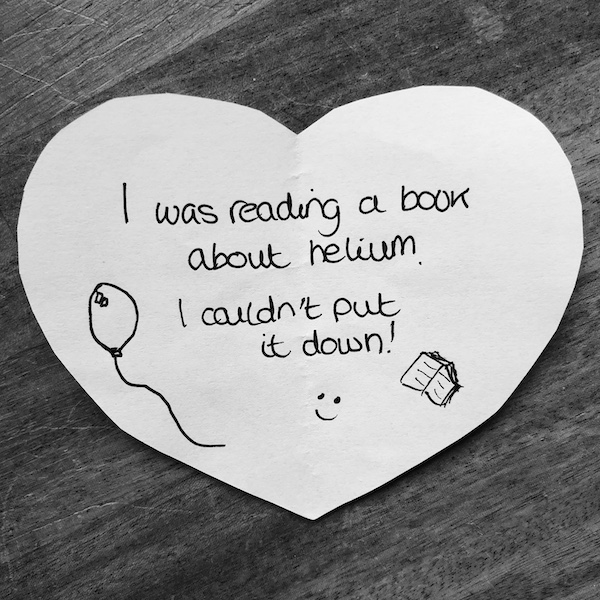 I was reading a book
about helium.
I couldn't put
it down!